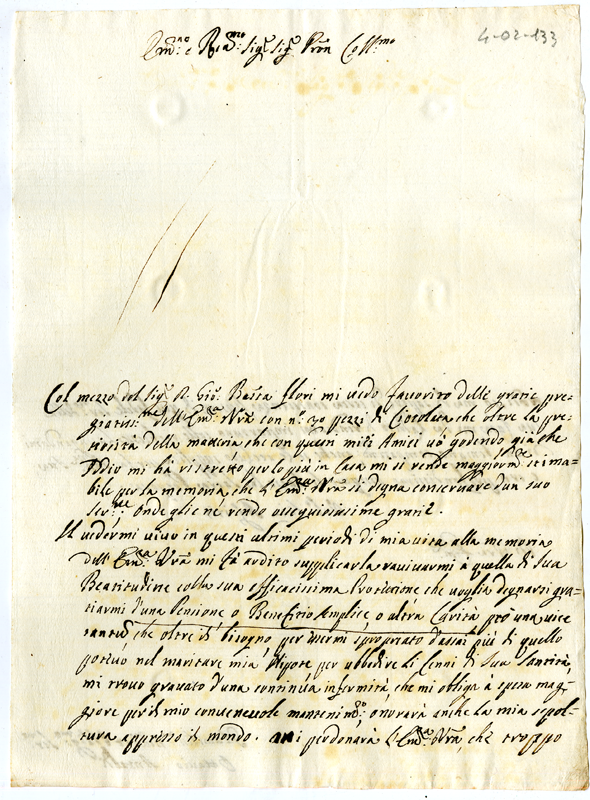 4-02-133
Em.no e Re.mo Sig.r Sig.r Pron Coll.mo
Col mezzo del Sig.r D. Gio: Batta Flori mi vedo favorito delle gratie pre=
giatiss.me dell'Em.za Vra con n.o 30 pezzi di Ciocolata che oltre la pre=
tiosità della materia che con questi miei Amici vò godendo già che
Iddio mi hà ristretto per lo più in Casa mi si rende maggiorm.te stima=
bile per la memoria che l'Em.za Vra si digna conservare d'un suo
Ser.re: onde glie ne rendo ossequiosissime gratie.
Il vedermi vivo in questi ultimi periodi di mia vita alla memoria
dell'Em.za Vra mi fà ardito supplicarla ravivarmi à quella di Sua
Beatitudine colla sua efficacissima Protettione che voglia degnarsi gra=
tiarmi d'una Pensione o Beneficio semplice, o altra Carità pro una vice
tantu che oltre il bisogno per essermi spropriato d'assai più di quello
portavo nel maritare mia Nipote per ubbedire li Cenni di Sua Santità,
mi trovo gravato d'una continua infermità che mi obliga à spesa mag=
giore per il mio convenevole mantenim.to; onorarà anche la mia sepol=
tura appresso il mondo. mi perdonarà l'Em.za Vra, che troppo